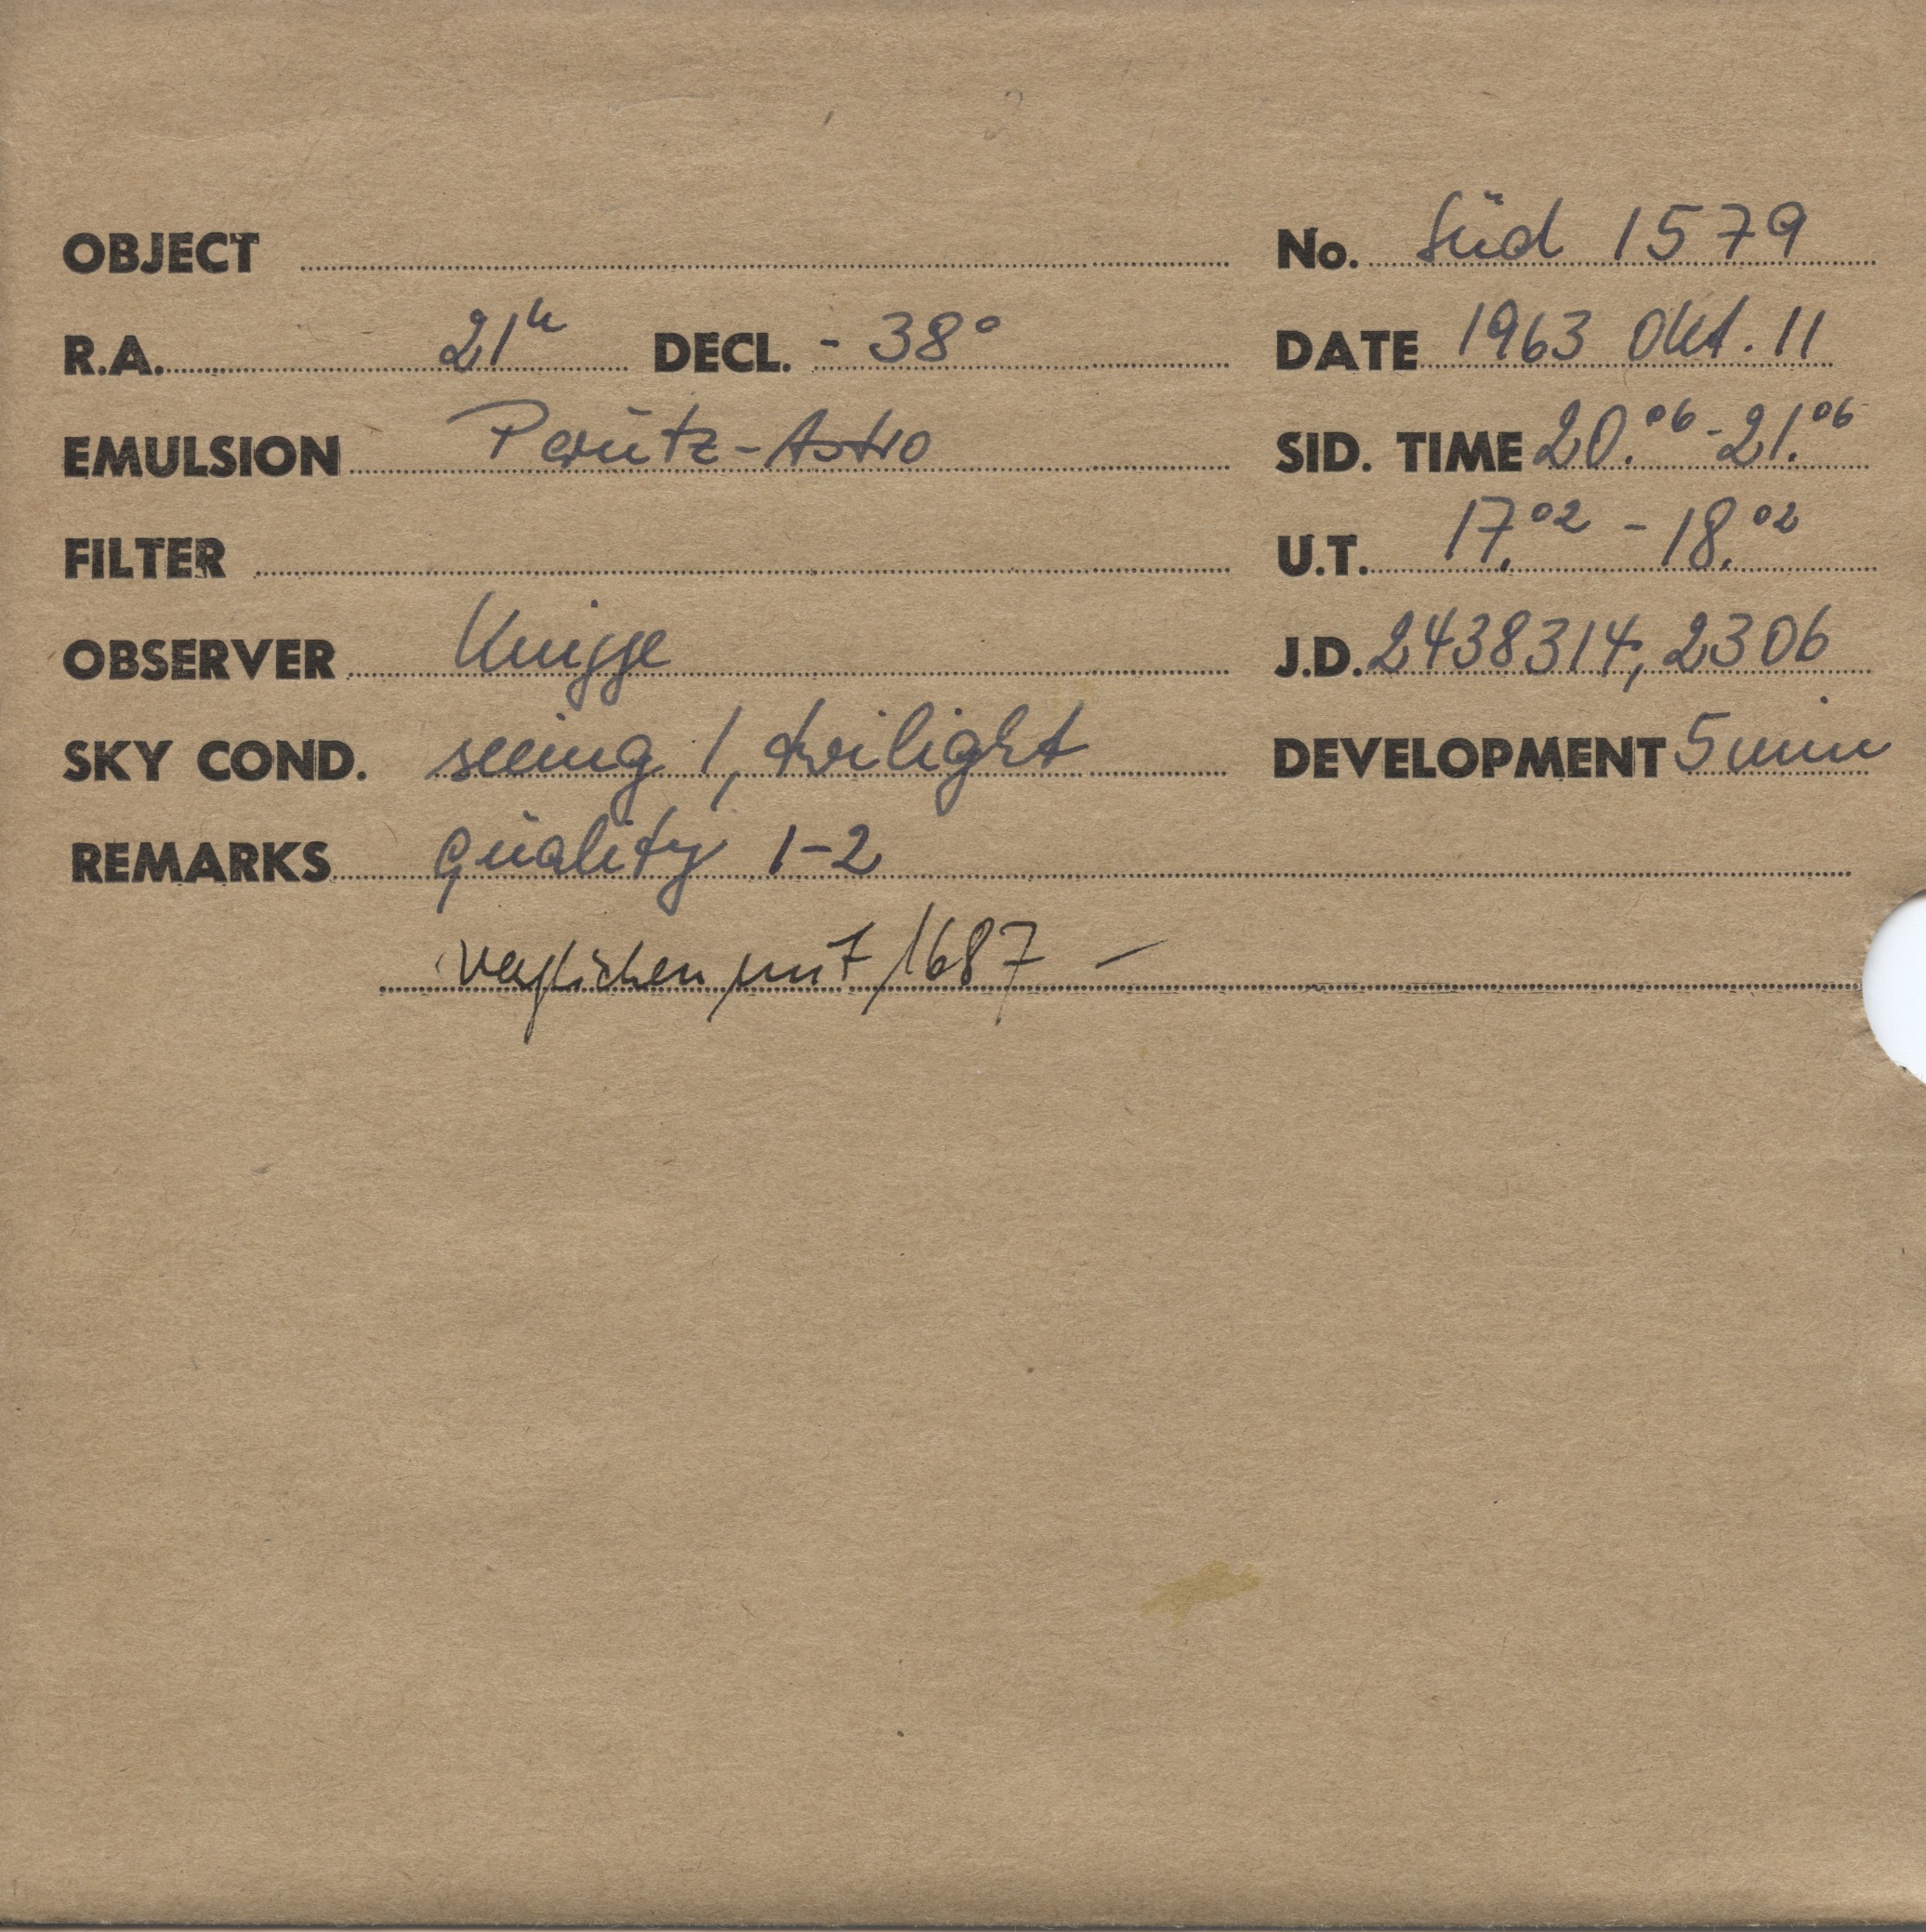 OBJECT No. Süd 1579
R.A. 21h DECL. - 38° DATE 1963 Okt. 11
EMULSION Perutz-Astro SID. TIME 20.06 - 21.06
FILTER U.T. 17.02 - 18.02
OBSERVER Knigge J.D. 2438314,2306
SKY COND. seeing 1, twilight DEVELOPMENT 5 min
REMARKS quality 1-2
verglichen mit 1687 -